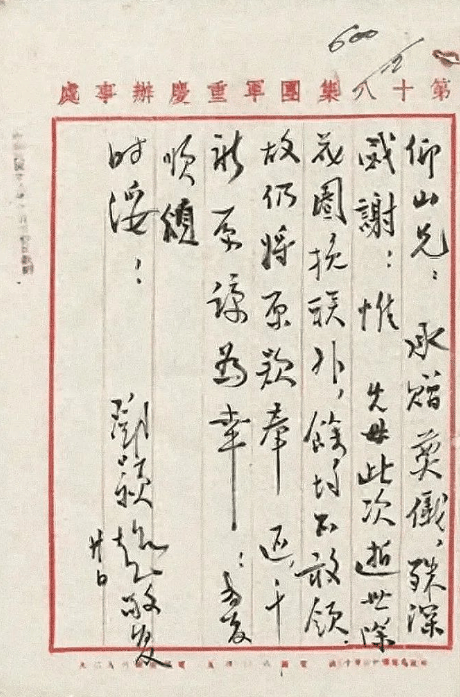 600
第十八集團軍重慶辦事處
仰山兄：承贈奠儀，殊深
感謝：惟 先母此次逝世除
花圈，挽联外，餘均不敢领
故仍将原款奉 返，千
祈原諒為幸！
順頌
时绥！
鄧颖超敬复
廿日